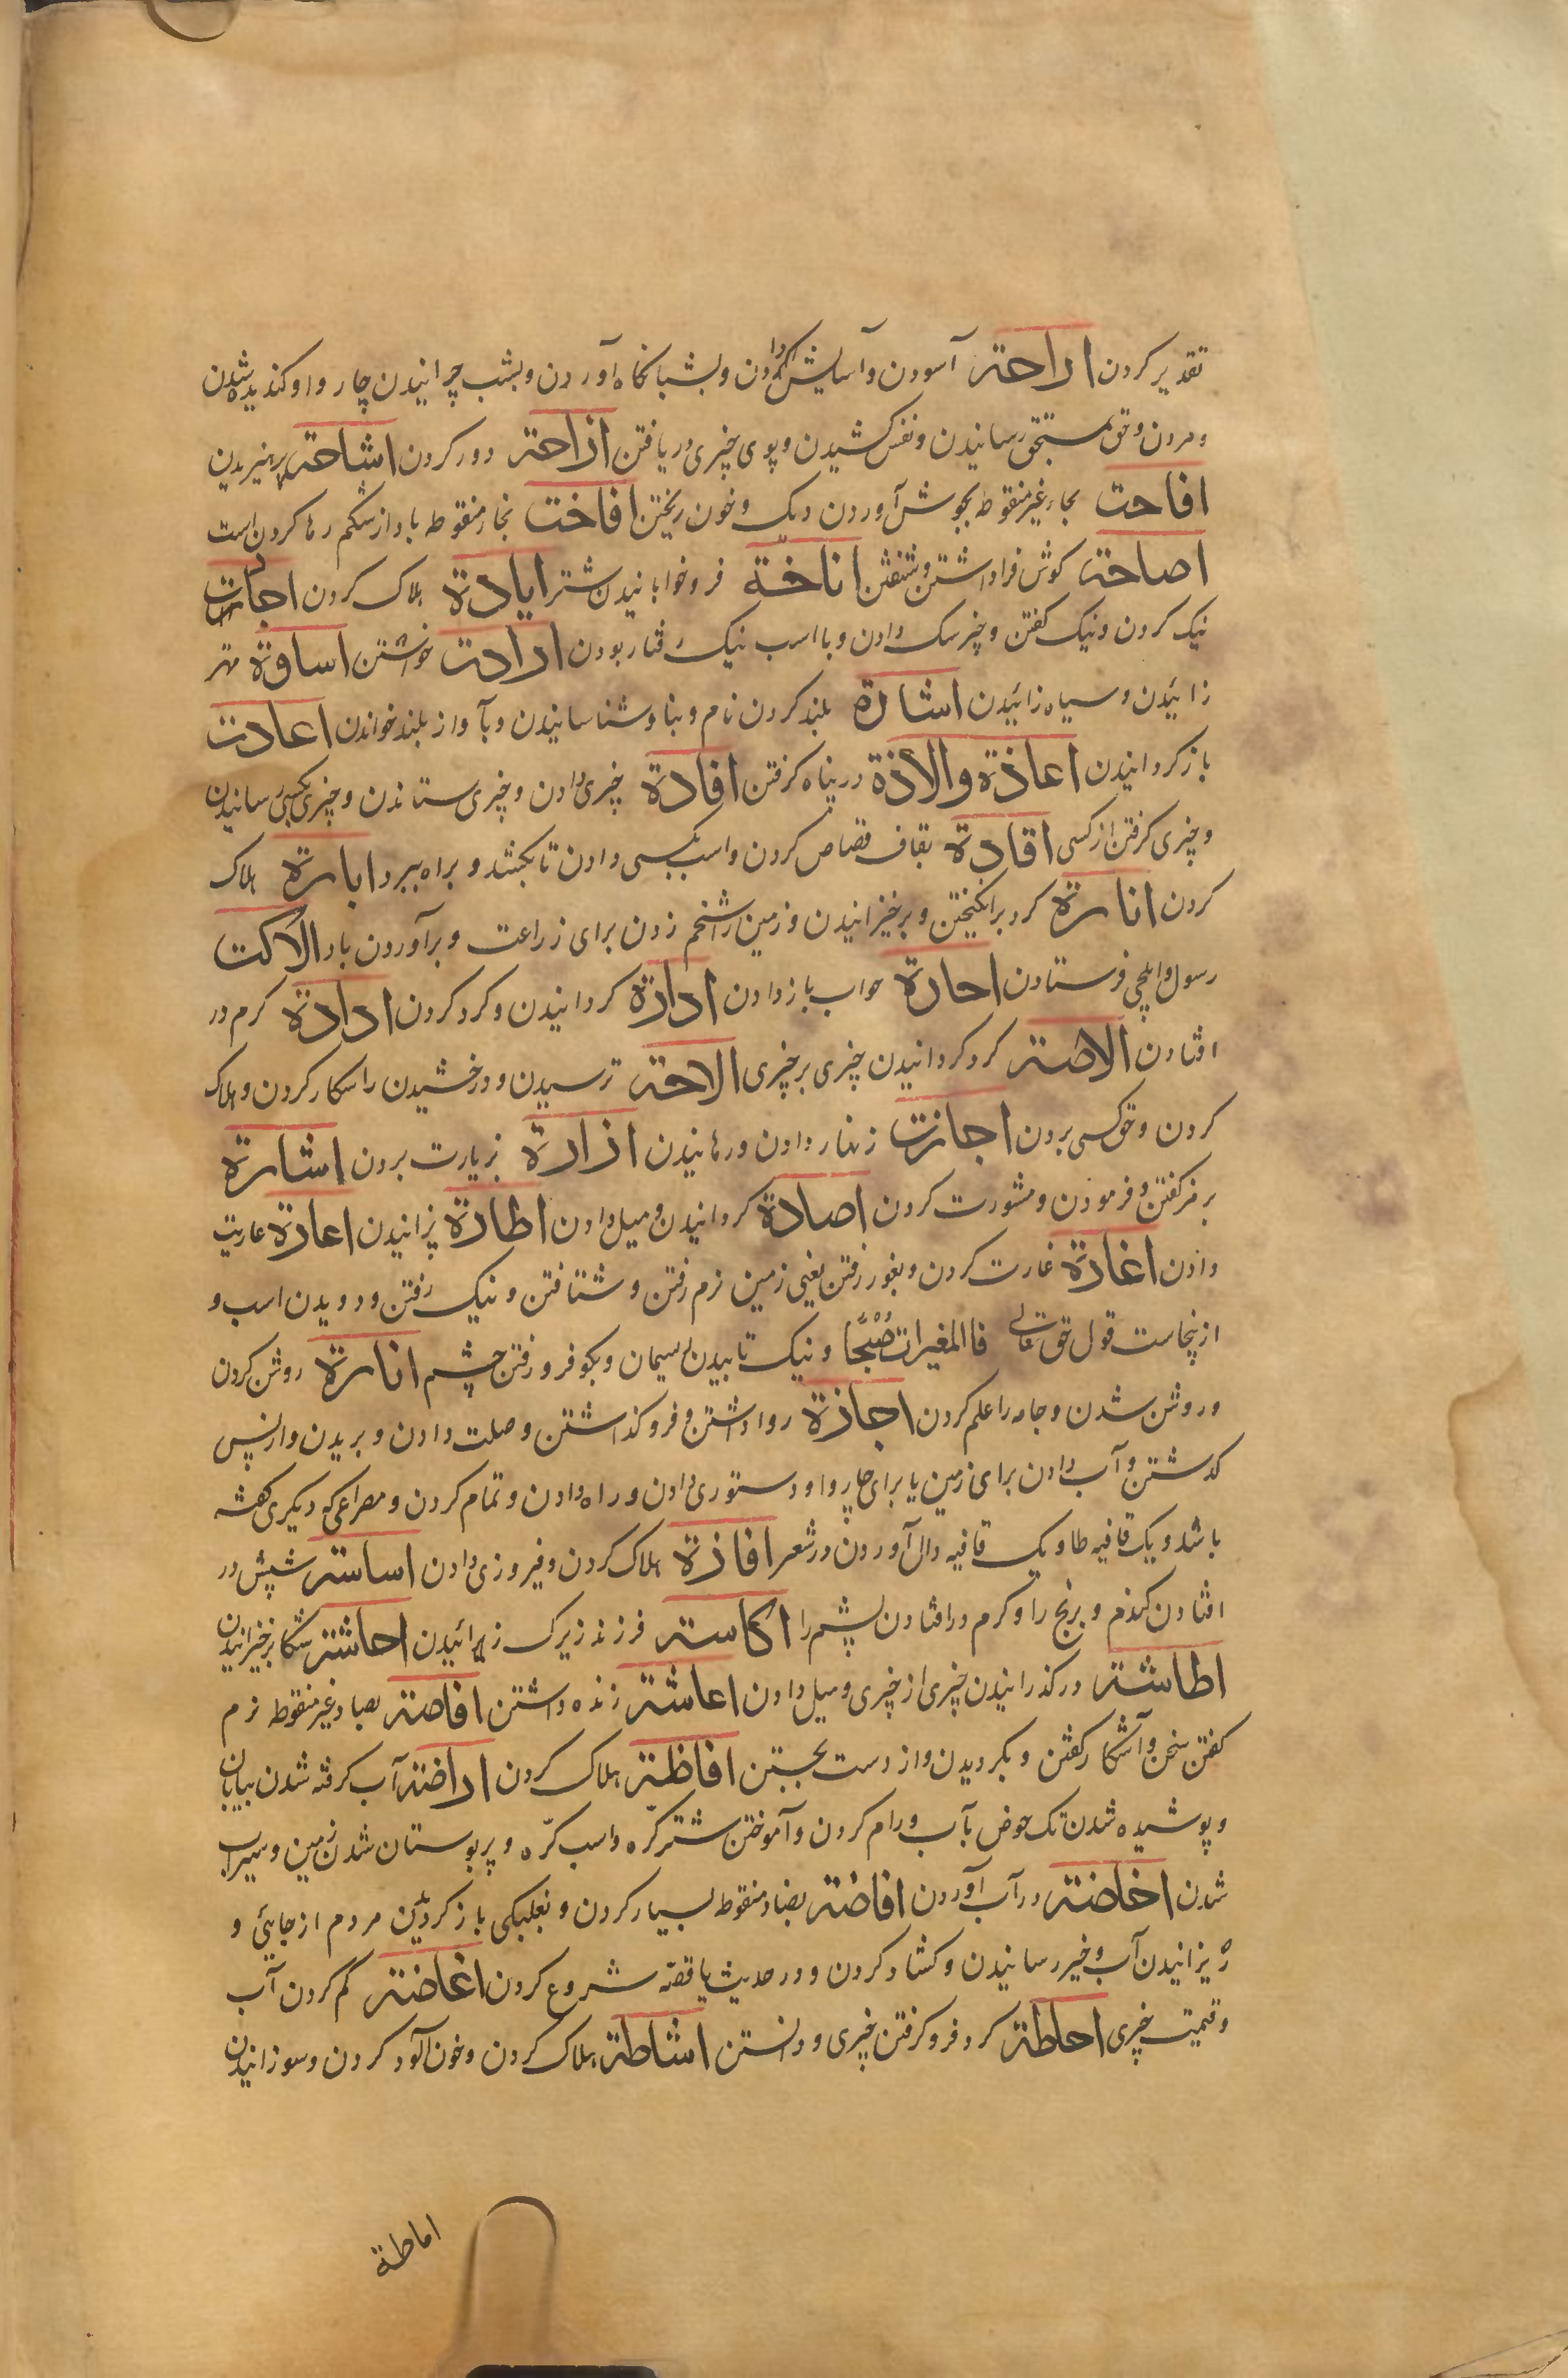 تقدیر کردن اراحته آسودن و آسایش دادن و بشبانگاه آوردن و بشب چرانیدن چاروا و گندیده شدن
و مردن و حق بمستحق رسانیدن و نفس کشیدن و بوی چیزی دریافتن ازاحته دور کردن اشاحته پرهیزیدن
افاحت بحاء غیر منقوطه بجوش آوردن دیک و خون ریختن افاخت بخاء منقوطه باد از شکم رها کردن است
اصاخته کوش فرا داشتن و شنفتن اناخة فرو خوابانیدن شتر ابادة هلاک کردن اجادت
نیک کردن و نیک کفتن و چیز نیک دادن و با اسب نیک رفتار بودن ارادت خواستن اسادة مهتر
زائیدن و سیاه زائیدن اشادة بلند کردن نام و بنا و شناسانیدن و بآواز بلند خواندن اعادت
باز کردانیدن اعاذة والاذة در پناه کرفتن افادة چیزی دادن و چیزی ستاندن و چیزی بکسی رسانیدن
و چیزی کرفتن از کسی اقادة بقاف قصاص کردن و اسب بکسی دادن تا بکشد و براه ببرد ابارة هلاک
کردن اثارة کرد برانکیختن و برخیزانیدن و زمین را شخم زدن برای زراعت و برآوردن باد الاکت
رسول و ایلچی فرستادن احارة جواب باز دادن ادارة کردانیدن و کرد کردن ادادة کرم در
افتادن الاصته کرد کردانیدن چیزی بر چیزی الاحته ترسیدن و درخشیدن و اشکار کردن و هلاک
کردن و حق کسی بردن اجارت زنهار دادن و رهانیدن ازارة بزیارت بردن اشارة
برمز کفتن و فرمودن و مشورت کردن اصارة کردانیدن و میل دادن اطارة پرانیدن اعارة عاریت
دادن اغارة غارت کردن و بغور رفتن یعنی زمین نرم رفتن و شتافتن و نیک رفتن و دویدن اسب و
ازینجاست قول حق تعالی فاالمغیرات صُبْحًا و نیک تابیدن ریسمان و بکو فرو رفتن چشم انارة روشن کردن
و روشن شدن و جامه را علم کردن اجازة روا داشتن و فرو کذاشتن و صلت دادن و بریدن و از پس
کذشتن و آب دادن برای زمین یا برای چاروا و دستوری دادن و راه دادن و تمام کردن و مصراعی که دیکری کفته
باشد و یک قافیه طا و یک قافیه دال آوردن در شعر افازة هلاک کردن و فیروزی دادن اساسته شپش در
افتادن کندم و برنج را و کرم در افتادن پشم را اکاسته فرزند زیرک زائیدن احاشته شکار برخیزانیدن
اطاشته در کذرانیدن چیزی از چیزی و میل دادن اعاشته زنده داشتن افاصته بصاد غیر منقوطه نرم
کفتن سخن و آشکار کفتن و بکردیدن و از دست بجستن افاظته هلاک کردن اراضته آب کرفته شدن بیابان
و پوشیده شدن تک حوض بآب و رام کردن و آموختن شتر کرّه و اسب کرّه و پر بوستان شدن زمین و سیراب
شدن اخاضته در آب آوردن افاضته بضاد منقوطه بسیار کردن و بغلبکی باز کردیدن مردم از جائی و
ریزانیدن آب و خیر رسانیدن و کشاد کردن و در حدیث یا قصّه شروع کردن اغاضته کم کردن آب
و قیمت چیزی احاطته کرد فرو کرفتن چیزی و دانستن اشاطته هلاک کردن و خون آلود کردن و سوزانیدن
اماطة